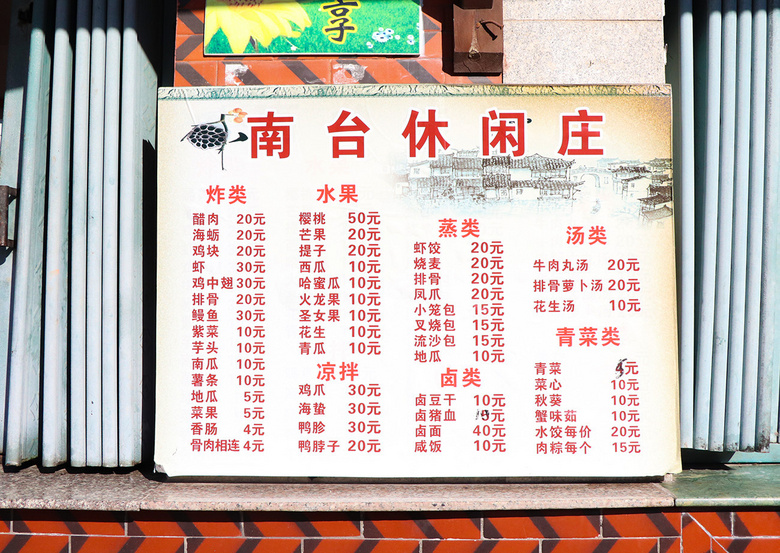 杏子
南台休闲庄
炸类
醋肉 20元
海蛎 20元
鸡块 20元
虾 30元
鸡中翅 30元
排骨 20元
鳗鱼 30元
紫菜 10元
芋头 10元
南瓜 10元
薯条 10元
地瓜 5元
菜果 5元
香肠 4元
骨肉相连 4元
水果
樱桃 50元
芒果 20元
提子 20元
西瓜 10元
哈蜜瓜 10元
火龙果 10元
圣女果 10元
花生 10元
青瓜 10元
凉拌
鸡爪 30元
海蛰 30元
鸭胗 30元
鸭脖子 20元
蒸类
虾饺 20元
烧麦 20元
排骨 20元
凤爪 20元
小笼包 15元
叉烧包 15元
流沙包 15元
地瓜 10元
卤类
卤豆干 10元
卤猪血 元
卤面 40元
咸饭 10元
汤类
牛肉丸汤 20元
排骨萝卜汤 20元
花生汤 10元
青菜类
青菜 元
菜心 10元
秋葵 10元
蟹味菇 10元
水饺每价 20元
肉粽每个 15元